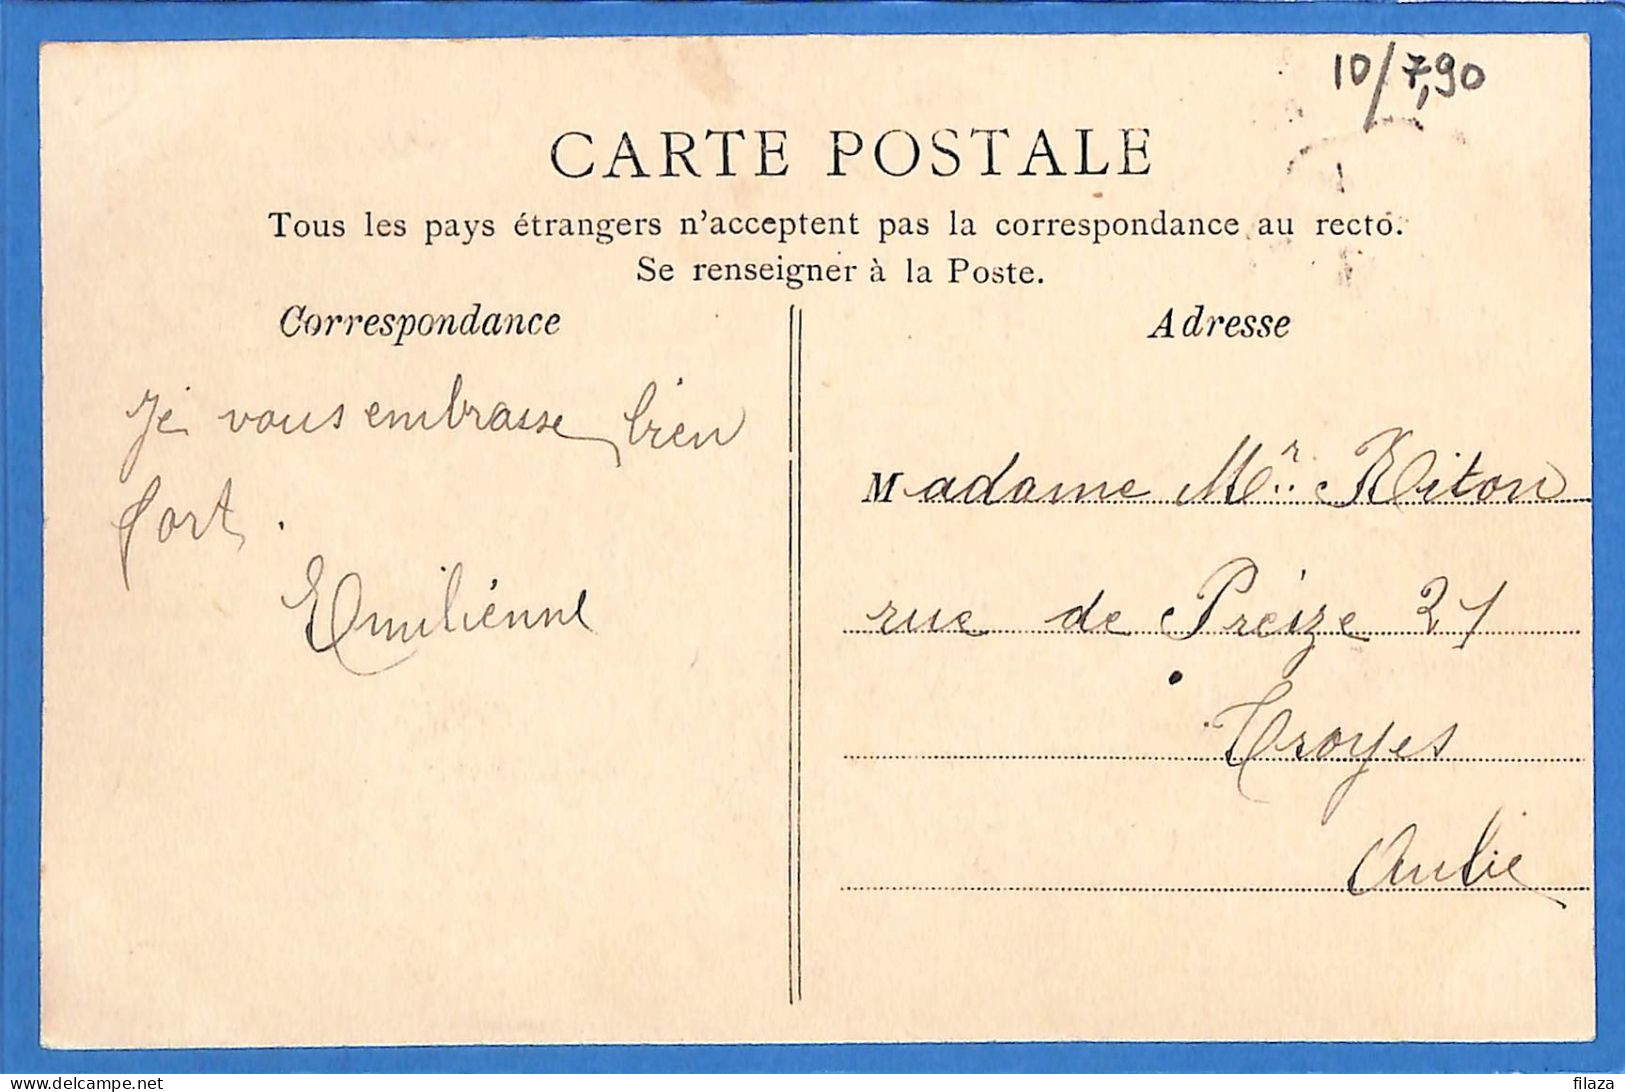 10/7,90
CARTE POSTALE
Tous les pays étrangers n'acceptent pas la correspondance au recto.
Se renseigner à la Poste.
Correspondance
Je vous embrasse bien
fort.
Emilienne
Adresse
Madame Mr.
rue de Preize 21
Troyes
Aube
www.delcampe.net
filaza